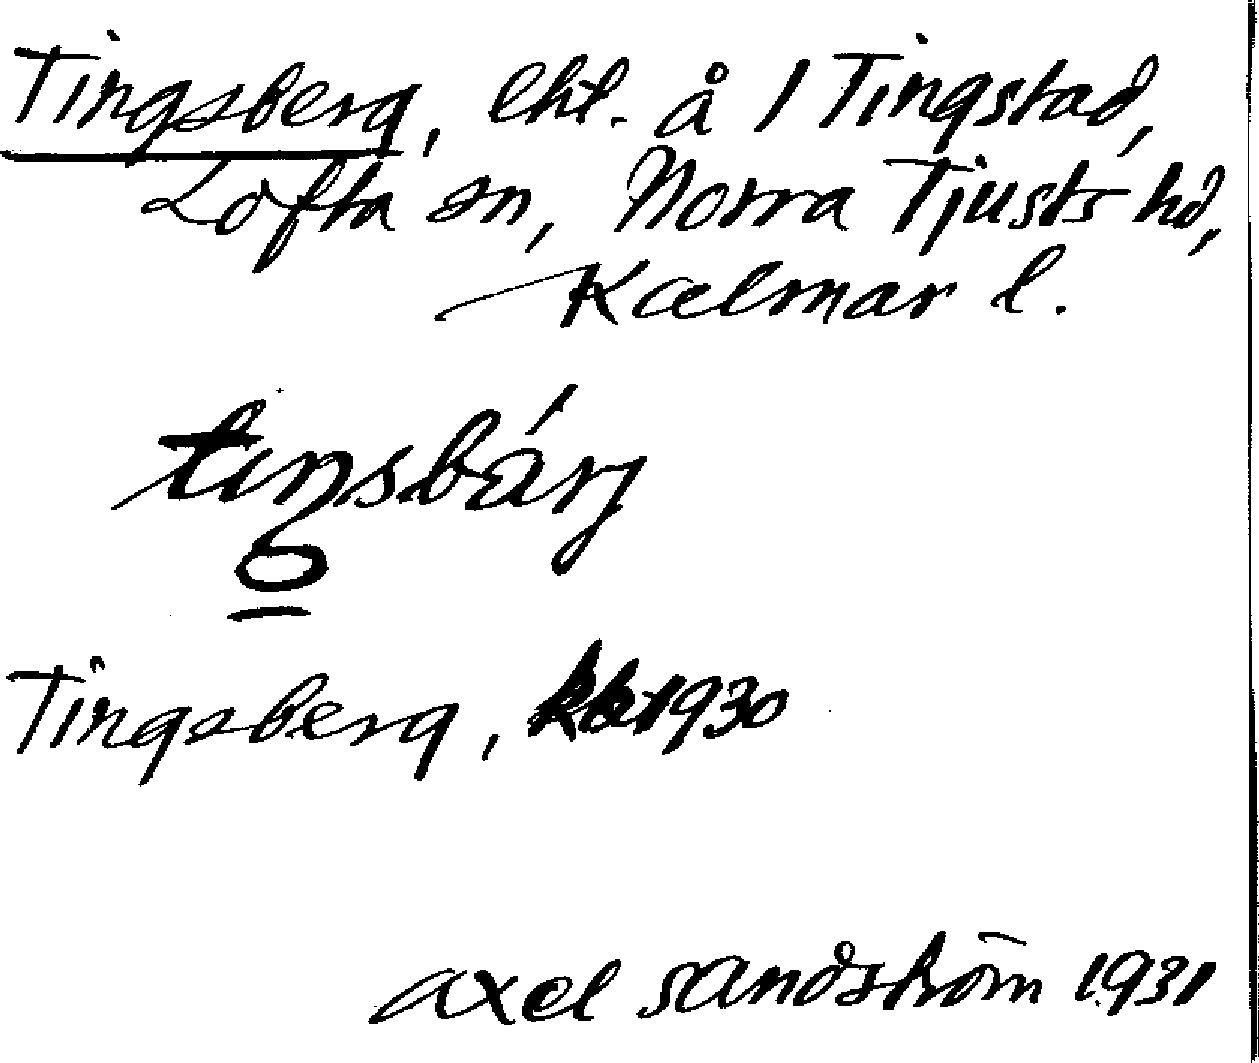 Tingsberg, lht. å 1 Tingstad,
Lofta sn, Norra Tjusts hd,
Kalmar l.
tiŋsbárj
Tingsberg, 1930
Axel Sandström 1931